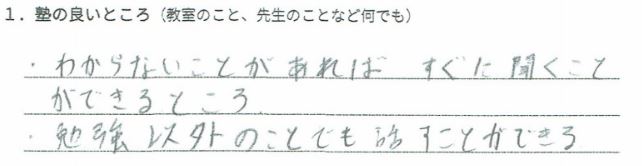 1. 塾の良いところ（教室のこと、先生のことなど何でも）
・わからないことがあれば すぐに聞くこと
ができるところ
・勉強以外のことでも話すことができる